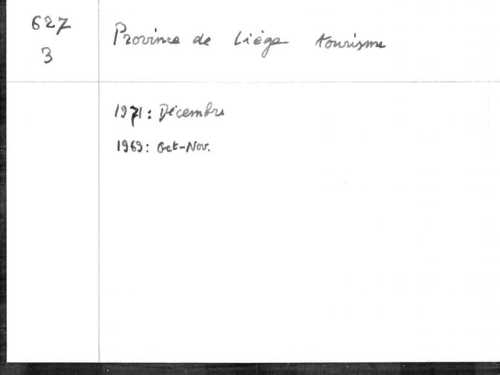 627 Province de Liége tourisme
3
1971: Décembre
1969: Oct-Nov.